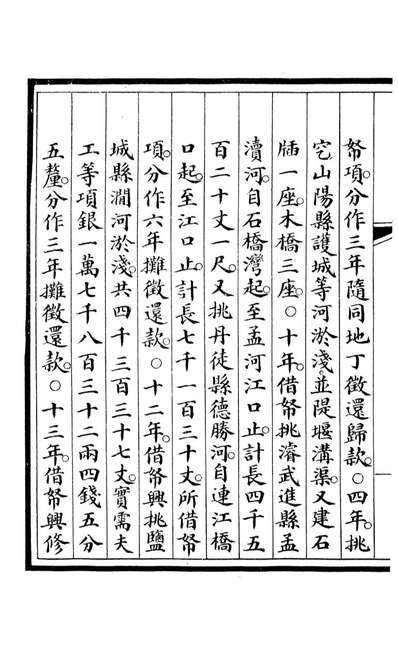 帑項。分作三年隨同地丁徵還歸款。○四年。挑
空山陽縣護城等河淤淺。並隄堰溝渠。又建石
牐一座。木橋三座。○十年。借帑挑濬武進縣孟
瀆河。自石橋灣起。至孟河江口止。計長四千五
百二十丈一尺。又挑丹徒縣德勝河。自連江橋
口起。至江口止。計長七千一百三十丈。所借帑
項。分作六年攤徵還款。○十二年。借帑興挑鹽
城縣澗河淤淺。共四千三百三十七丈。實需夫
工等項銀一萬七千八百三十二兩四錢五分
五釐。分作三年攤徵還款。○十三年。借帑興修